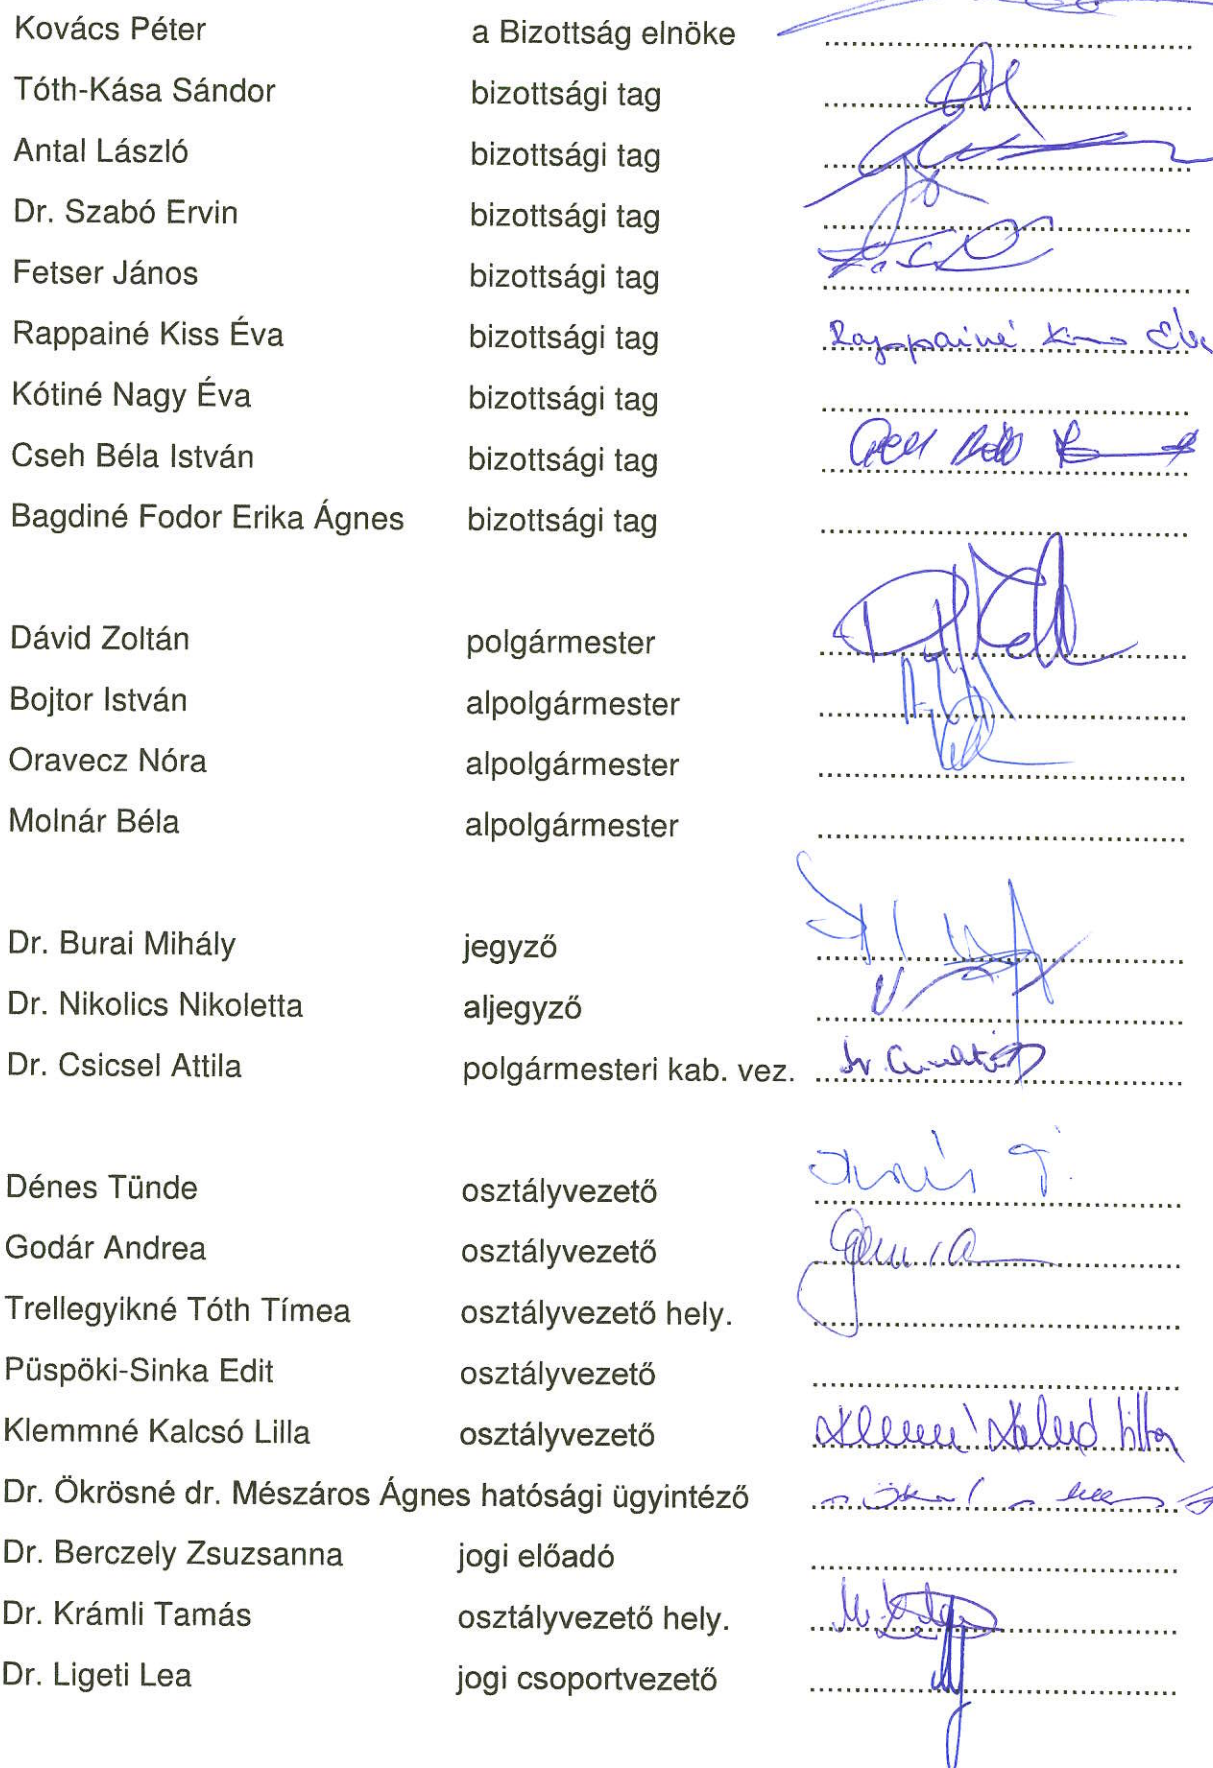 Kovács Péter a Bizottság elnöke
Tóth-Kása Sándor bizottsági tag
Antal László bizottsági tag
Dr. Szabó Ervin bizottsági tag
Fetser János bizottsági tag
Rappainé Kiss Éva bizottsági tag Rappainé Kiss Éva
Kótiné Nagy Éva bizottsági tag
Cseh Béla István bizottsági tag
Bagdiné Fodor Erika Ágnes bizottsági tag
Dávid Zoltán polgármester
Bojtor István alpolgármester
Oravecz Nóra alpolgármester
Molnár Béla alpolgármester
Dr. Burai Mihály jegyző
Dr. Nikolics Nikoletta aljegyző
Dr. Csicsel Attila polgármesteri kab. vez.
Dénes Tünde osztályvezető
Godár Andrea osztályvezető
Trellegyikné Tóth Tímea osztályvezető hely.
Püspöki-Sinka Edit osztályvezető
Klemmné Kalcsó Lilla osztályvezető
Dr. Ökrösné dr. Mészáros Ágnes hatósági ügyintéző
Dr. Berczely Zsuzsanna jogi előadó
Dr. Krámli Tamás osztályvezető hely.
Dr. Ligeti Lea jogi csoportvezető